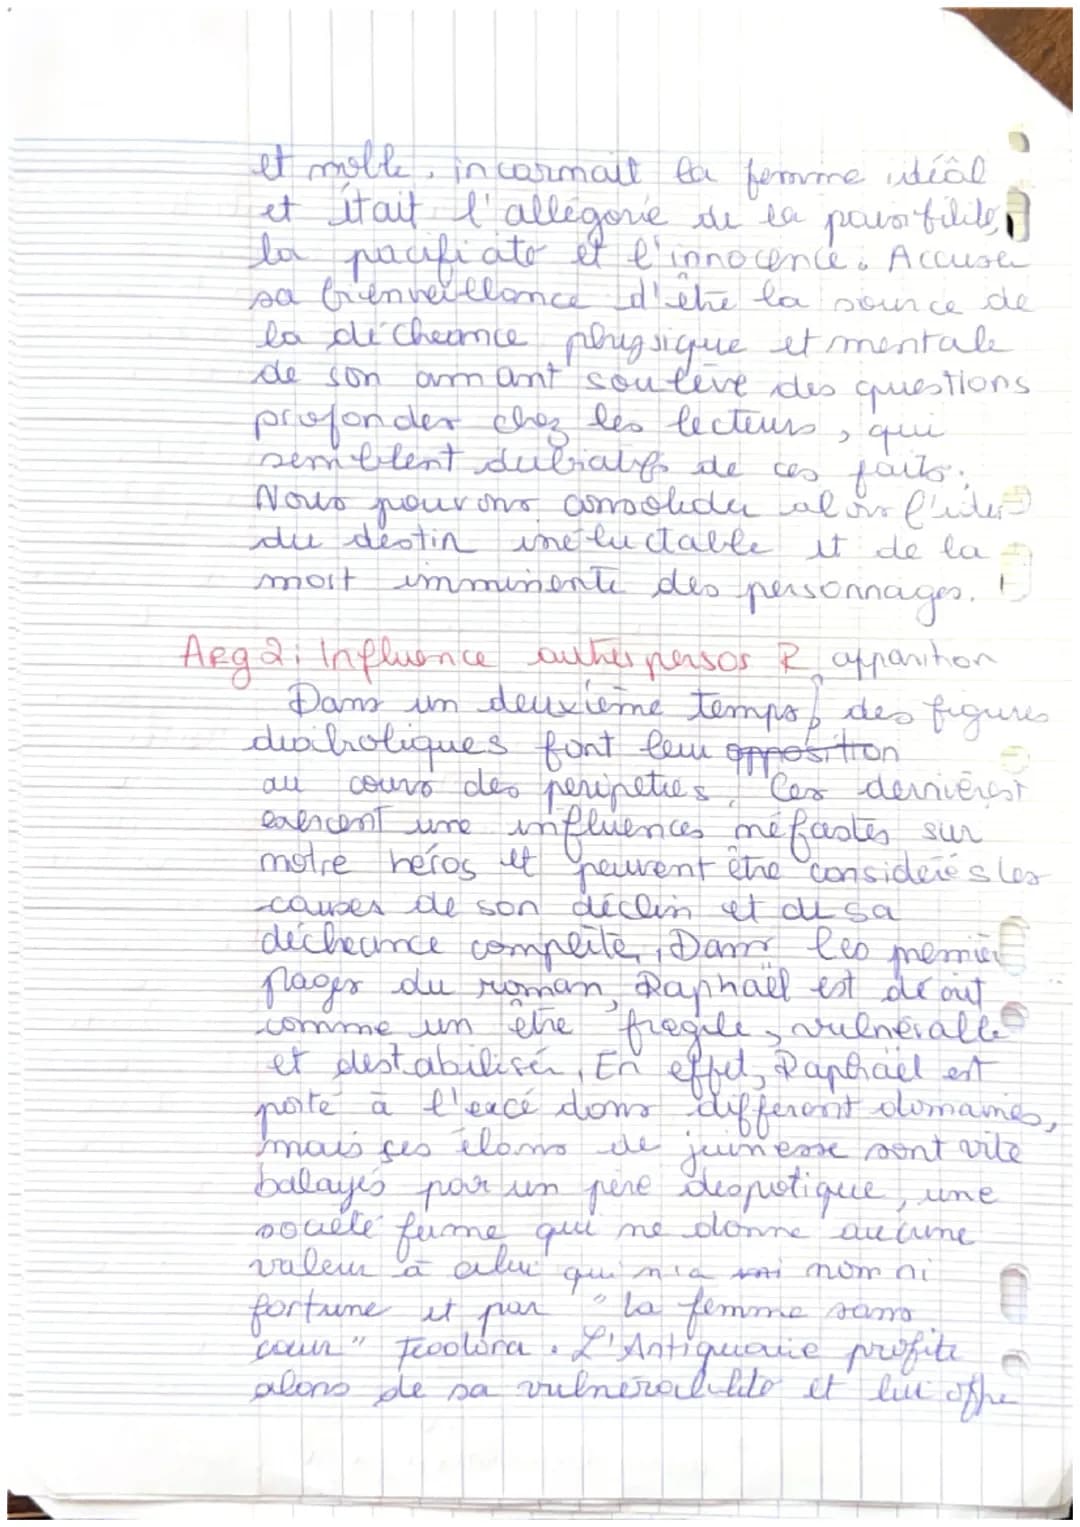 et noble, incarnait la femme idéâl
et était l'allégorie de la paisibilité,
la pacifiaté et l'innocence. Accuser
sa bienveillance d'être la source de
la décheance physique et mentale
de son amant soulève des questions
profondes chez les lecteurs, qui
semblent dubiatifs de ces faits.
Nous pouvons consolider alors l'idée
du destin inéluctable et de la
mort imminente des personnages.
Arg 2 : Influence autres persos R apparition
Dans un deuxième temps, des figures
diaboliques font leur opposition
au cours des péripéties. Ces dernières
exercent une influences méfastes sur
notre héros et peuvent être considérés les
causes de son déclin et de sa
décheance complète. Dans les premier
pages du roman, Raphaël est décrit
comme un être fragile, vulnérable
et destabilisé. En effet, Raphaël est
porté à l'excé dans différent domaines,
mais ses élans de jeunesse sont vite
balayés par un père despotique, une
société fermé qui ne donne aucune
valeur à celui qui n'a nom ni
fortune et par "la femme sans
cœur" Feodora. L'Antiquaire profite
alors de sa vulnérabilité et lui offre